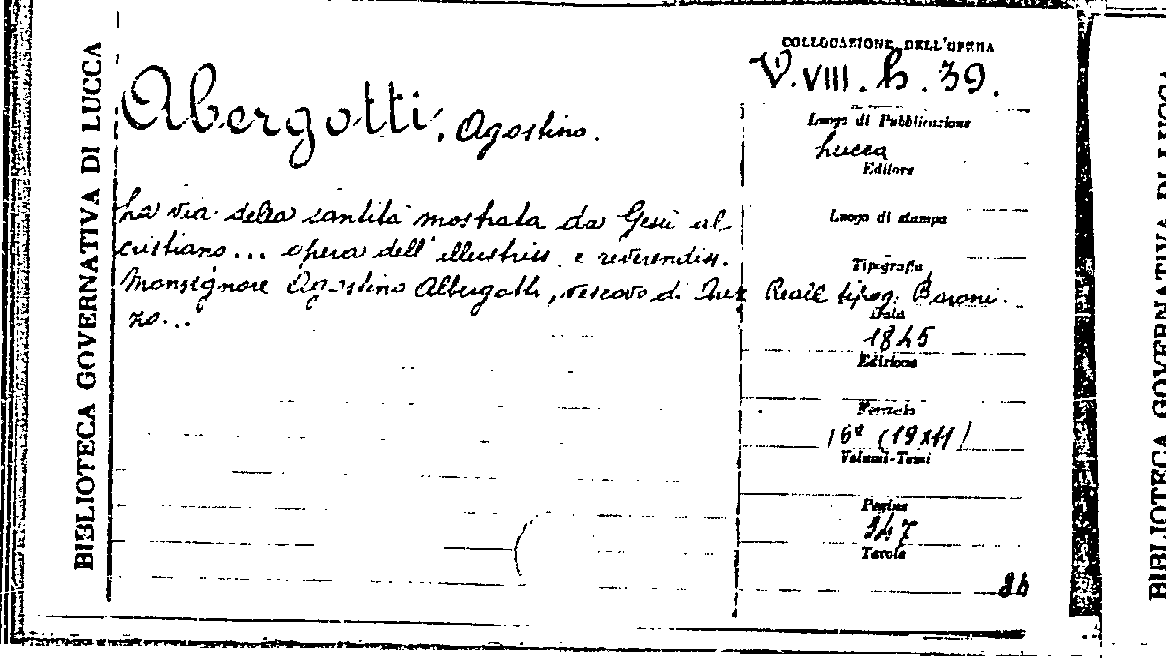 BIBLIOTECA GOVERNATIVA DI LUCCA
COLLOCAZIONE DELL'OPERA
V. VIII. h. 39.
Abergotti, Agostino.
Luogo di Pubblicazione
Lucca
Editore
La via della santità mostrata da Gesù al
cristiano... opera dell'illustriss. e reverendiss.
Monsignore Agostino Albergotti, vescovo di Arez
zo...
Luogo di stampa
Tipografia
Reale tipog. Baroni.
Data
1845
Edizione
Formato
16° (19x11)
Volumi-Tomi
Pagine
347
Tavole
BIBLIOTECA GOVERNATIVA DI LUCCA